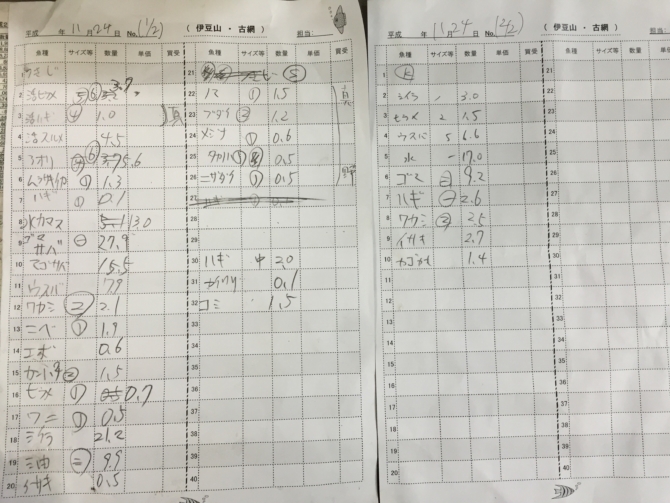 平成 年 11月 24日 No. (1/2) ( 伊豆山 ・ 古網 ) 担当:
魚種 サイズ等 数量 単価 買受 魚種 サイズ等 数量 単価 買受
1
2 3.7
3 活ハギ ④ 1.0
4 活スルメ 4.5
5 アオリ 5.6
6 ① 1.3
7 ハギ ① 0.1
8 水カマス 113.0
9 ゴマサバ ㊀ 27.9
10 マゴサバ 15.5
11 ウスバ 7.9
12 ワカシ ㊁ 2.1
13 ニベ ① 1.9
14 エボ 0.6
15 1.5
16 ヒラメ ① 0.7
17 ワニ ① 0.5
18 シイラ 21.2
19 ㊁ 9.9
20 イサキ 0.5
21 ⑤
22 ① 1.5
23 ブダイ ② 1.2
24 メジナ ① 0.6
25 タカハ ① 0.5
26 ニザダイ ① 0.5
27
28
29
30 ハギ 中 2.0
31 0.1
32 ゴミ 1.5
33
34
35
36
37
38
39
40
平成 年 11月 24日 No. (2/2) ( 伊豆山 ・ 古網 ) 担当:
魚種 サイズ等 数量 単価 買受 魚種 サイズ等 数量 単価
1 K
2 シイラ 3.0
3 ヒラメ 2 1.5
4 ウスバ 5 6.6
5 水 一 17.0
6 ゴマ ㊁ 9.2
7 ハギ ㊀ 2.6
8 ワカシ ② 2.5
9 イサキ 2.7
10 カゴカキ 1.4
11
12
13
14
15
16
17
18
19
20
21
22
23
24
25
26
27
28
29
30
31
32
33
34
35
36
37
38
39
40